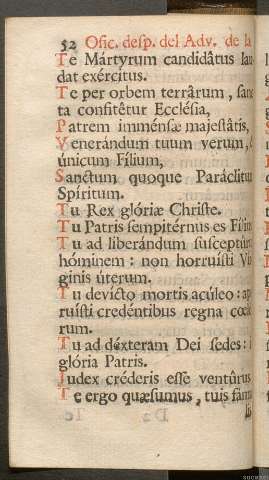 52 Ofic. desp. del Adv. de la
Te Mártyrum candidâtus lau
dat exércitus.
Te per orbem terrârum, san
ta confitêtur Ecclésia,
Patrem imménsæ majestâtis,
Venerándum tuum verum,
únicum Fílium,
Sanctum quoque Paráclitu
Spíritum.
Tu Rex glóriæ Christe.
Tu Patris sempitérnus es Fíliu
Tu ad liberándum susceptúru
hóminem : non horruísti Vir
ginis úterum.
Tu devícto mortis acúleo : ap
ruísti credéntibus regna cœló
rum.
Tu ad déxteram Dei sedes :
glória Patris.
Judex créderis esse ventûrus
Te ergo quæsumus, tuis fámu